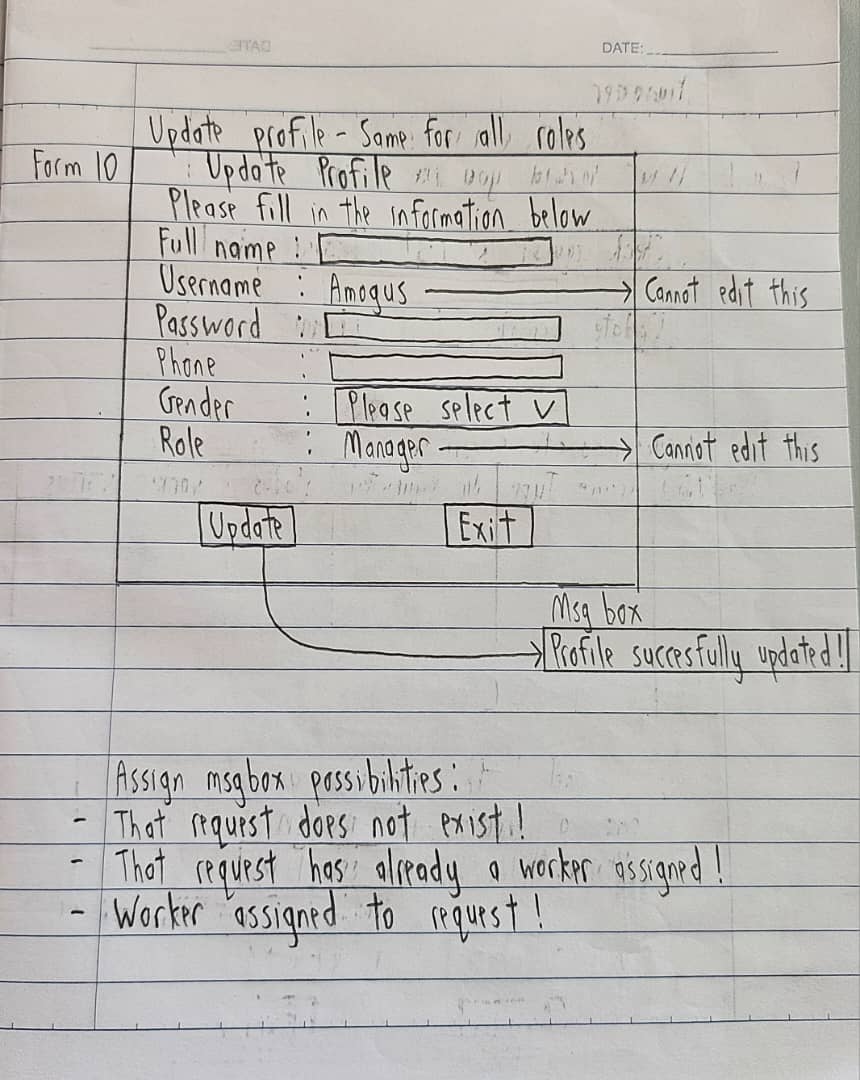 DATE:
Update profile - Same for all roles
Form 10
Update Profile
Please fill in the information below
Full name :
Username : Amogus Cannot edit this
Password :
Phone :
Gender : Please select V
Role : Manager Cannot edit this
Update Exit
Msg box
Profile succesfully updated!
Assign msgbox possibilities:
- That request does not exist!
- That request has already a worker assigned!
- Worker assigned to request!